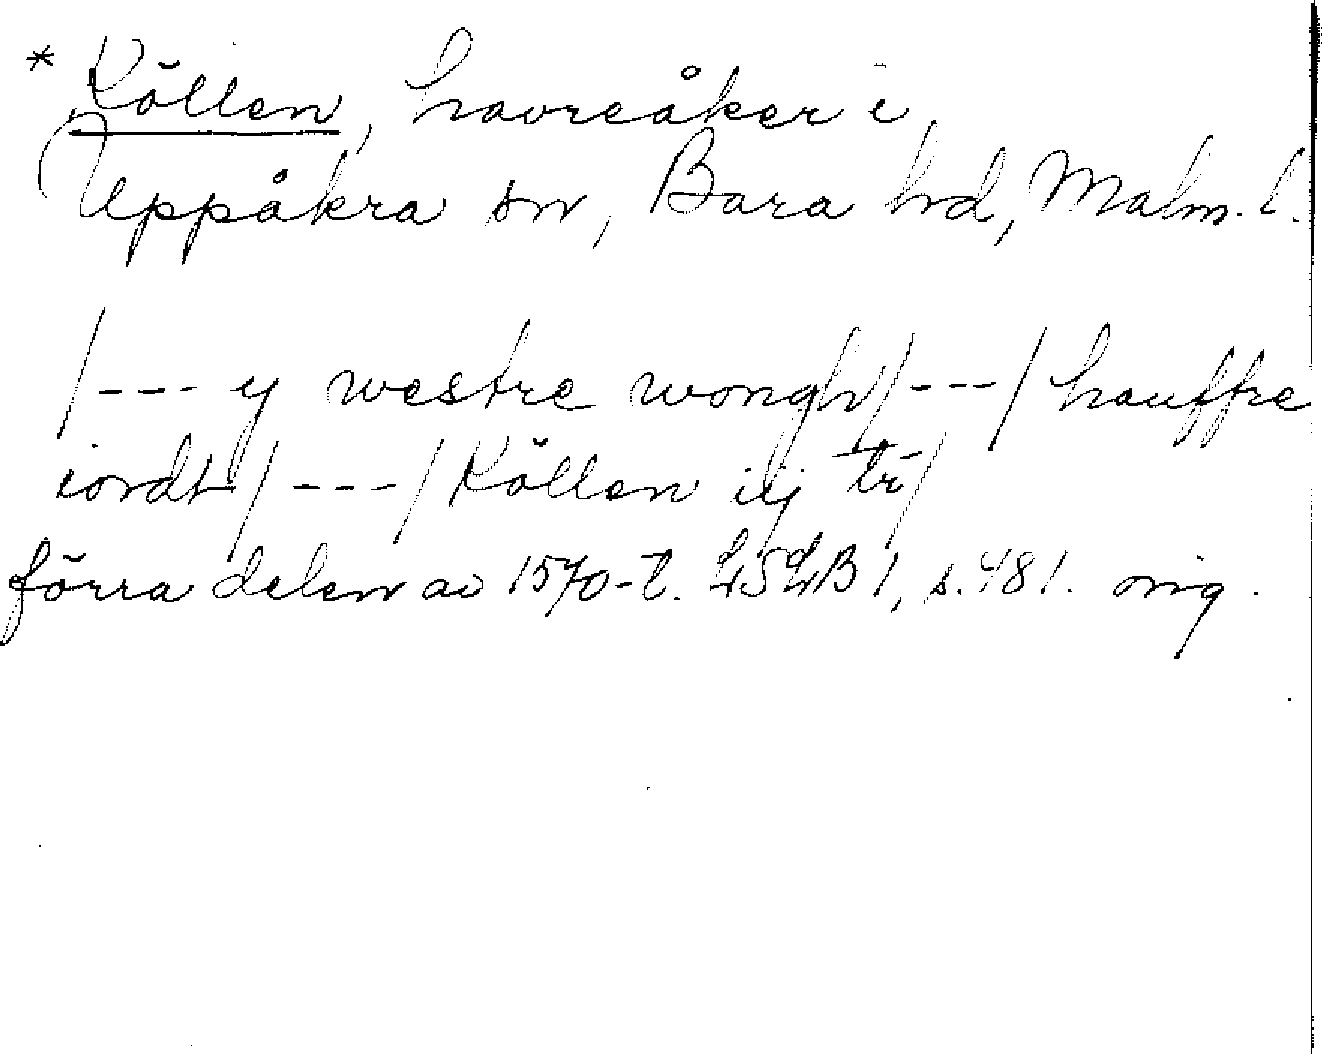 * Kőllen, havreåker i
Uppåkra sn, Bara hd, Malm. l.
/--- y westre wongh/---/ hauffre
iordt/---/ Kőllen iij tr̄/
förra delen av 1570-t. LSLB 1, s. 481. orig.